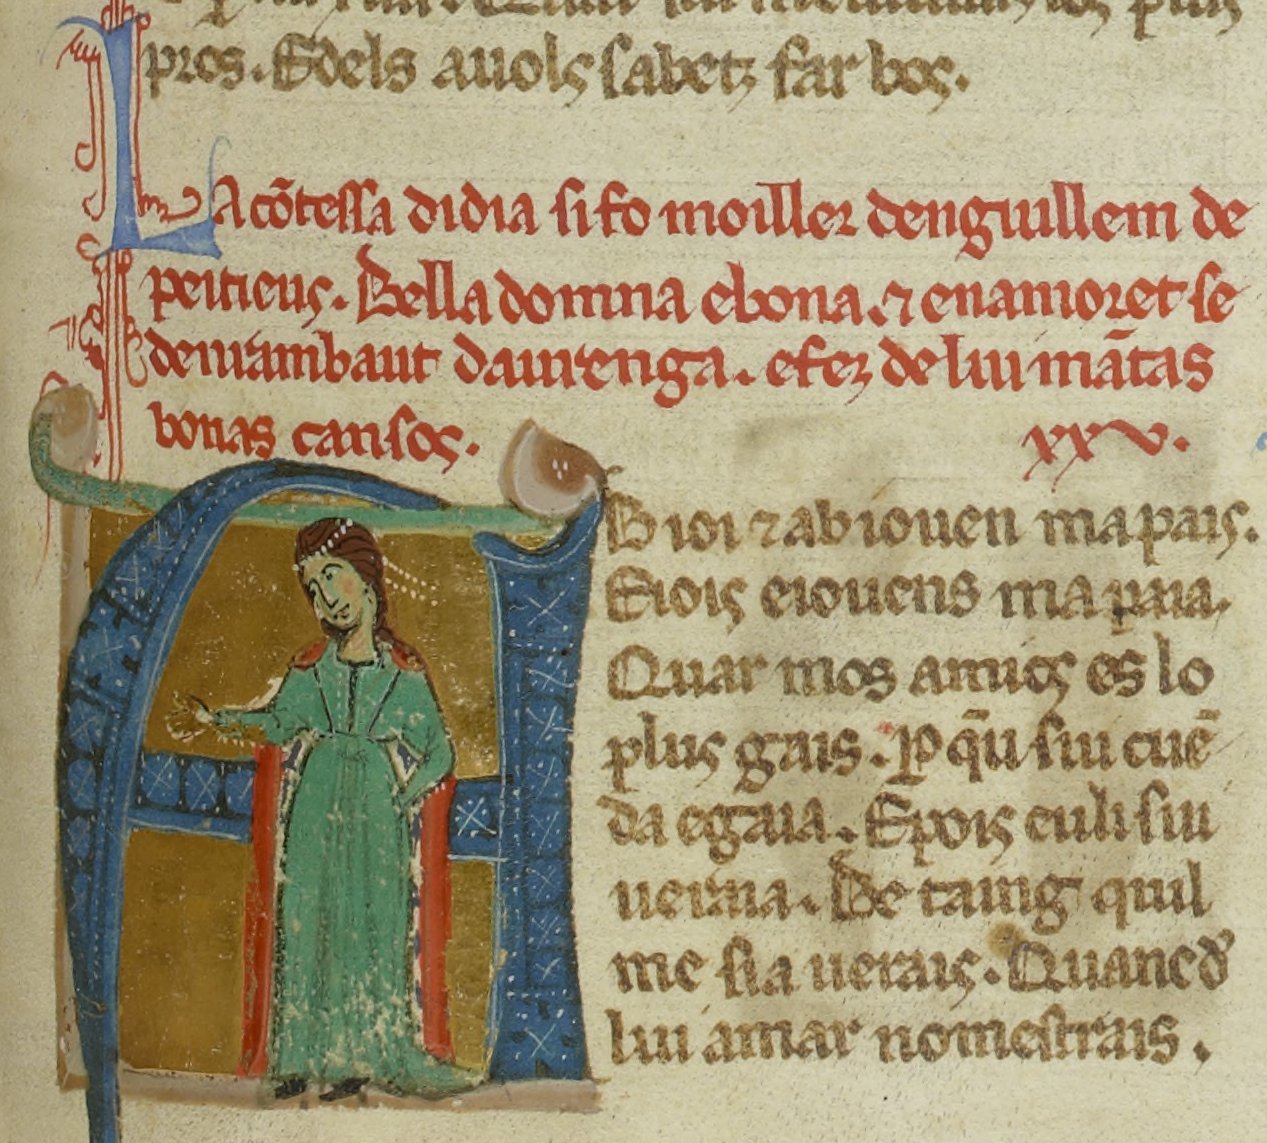 pros. Edels auols sabetz far bos.
La cõtessa didia si fo moiller denguillem de
peitieus. Bella domna ebona. ⁊ enamoret se
denrambaut daurenga. efez de lui mãtas
bonas cansos. XXV.
AB ioi ⁊ ab iouen mapais.
Eiois eiouens mapaia.
Quar mos amics es lo
plus gais. P q̃u sui cuẽ
da egaia. Epois euli sui
ueraia. Be taing quil
me sia uerais. Quanc d̾
lui amar nomestrais.